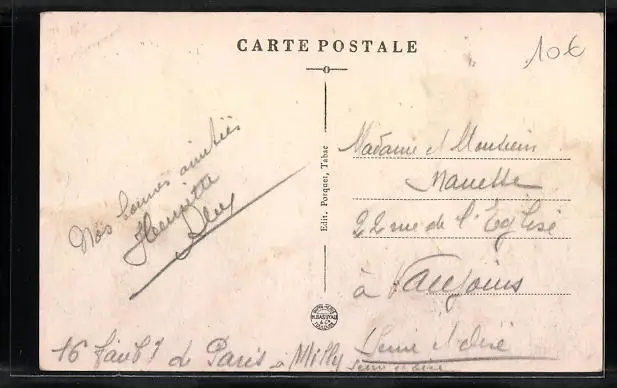 CARTE POSTALE
10€
Nos bonnes amitiés
Henriette
Edit. Porquet, Tabac
Madame et Monsieur
Manette
22 rue de l'Eglise
à Vaujours
Seine et Oise
Seine et Oise
16 Paris à Milly